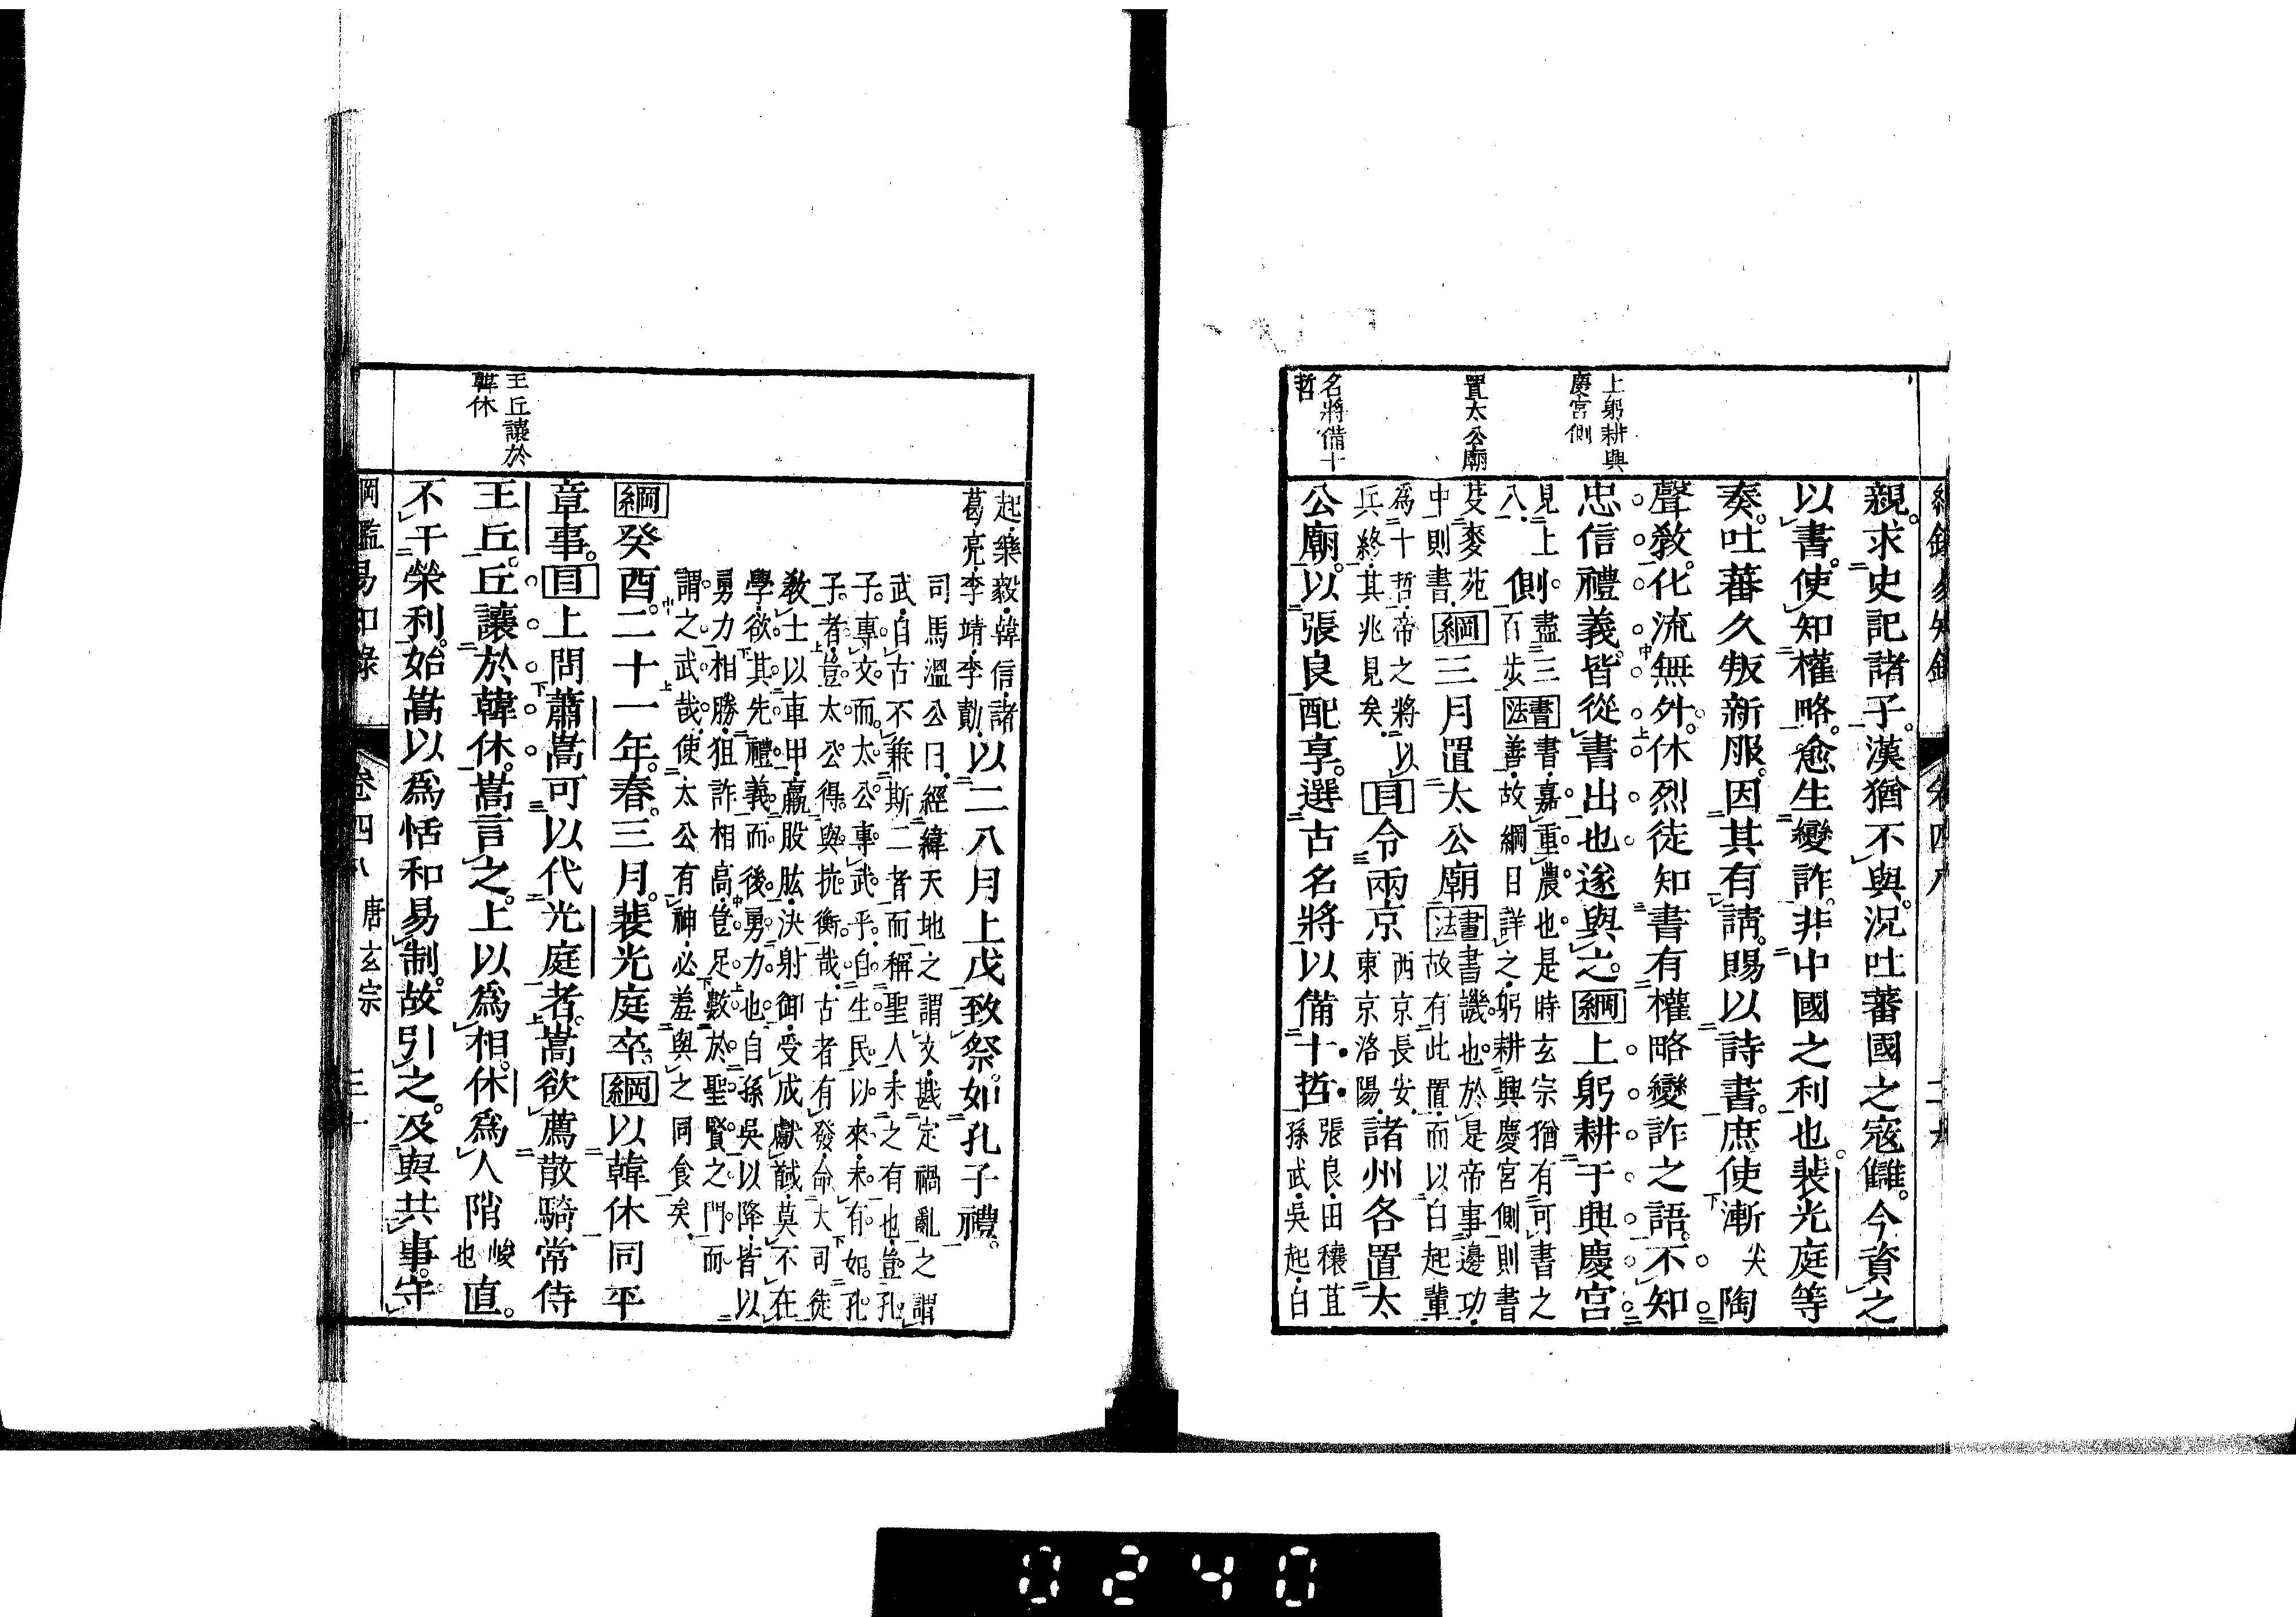 親。求史記諸子。漢猶不與。況吐蕃國之寇讎。今資之
以書。使知權略。愈生變詐。非中國之利也。裴光庭等
奏。吐蕃久叛新服。因其有請。賜以詩書。庶使漸 尖 陶
聲教。化流無外。休烈徒知書有權略變詐之語。不知
忠信禮義。皆從書出也。遂與之。綱上躬耕于興慶宮
側 見上。盡三 百步
書法 書。嘉重農也。是時玄宗猶有可書之
善。故綱目詳之。躬耕興慶宮側則書
八。芟麥苑
中則書。綱三月置太公廟 書法 書譏也。於是帝事邊功。
故有此置。而以白起輩
爲十哲。帝之將以
兵終。其兆見矣。目令兩京 西京長安。
東京洛陽。諸州各置太
公廟。以張良配享。選古名將。以備十哲 張良。田穰苴
孫武。吳起。白
上躬耕興
慶宮側
置太公廟
名將備十
哲
起。樂毅。韓信。諸
葛亮。李靖。李勣。以二八月上戊致祭。如孔子禮。
司馬溫公曰。經緯天地之謂文。戡定禍亂之謂
武。自古不兼斯二者而稱聖人。未之有也。豈孔
子專文。而太公專武乎。自生民以來。未有如孔
子者。豈太公得與抗衡哉。古者有發命大司徒
教士以車甲。贏股肱。決射御。受成獻馘。莫不在
學。欲其先禮義。而後勇力也。自孫吳以降。皆以
勇力相勝。狙詐相高。豈足數於聖賢之門。而
謂之武哉。使太公有神。必羞與之同食矣。
綱癸酉。二十一年。春。三月。裴光庭卒。綱以韓休同平
章事。目上問蕭嵩可以代光庭者。嵩欲薦散騎常侍
王丘。丘讓於韓休。嵩言之。上以爲相。休爲人陗 峻也 直。
不干榮利。始嵩以爲恬和易制。故引之。及與共事。守
王丘讓於
韓休
綱鑑易知錄 卷四八 唐玄宗
0240